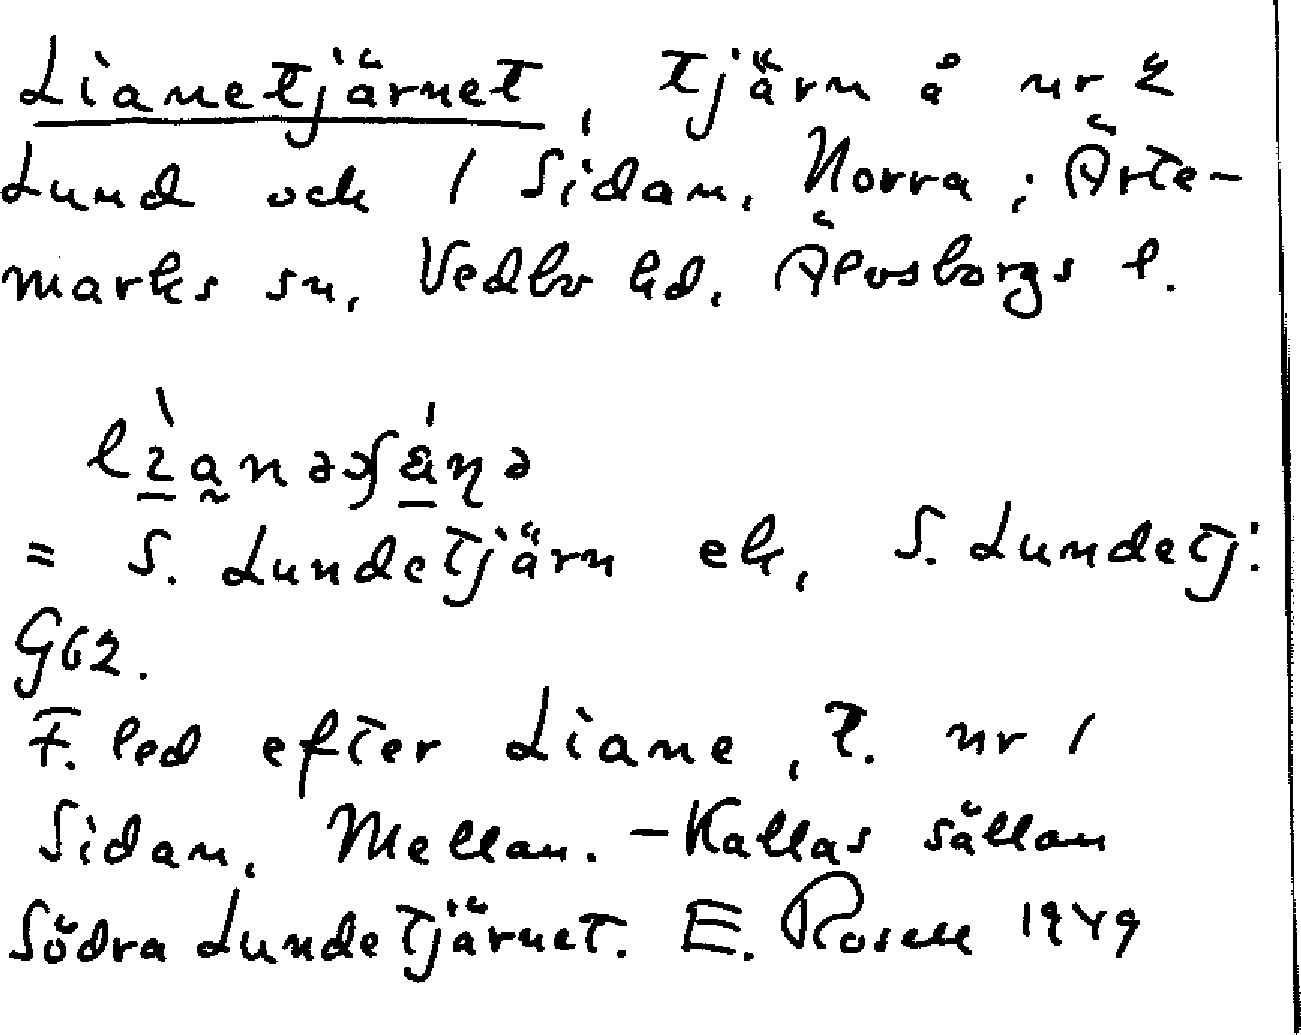 Lianetjärnet, tjärn å nr 2
Lund och 1 Sidan, Norra; Ärte-
marks sn, Vedbo hd, Älvsborgs l.
= S. Lundetjärn ek, S. Lundetj:
G62.
F. led efter Liane, t. nr 1
Sidan, Mellan. - Kallas sällan
Södra Lundetjärnet. E. Rosell 1949